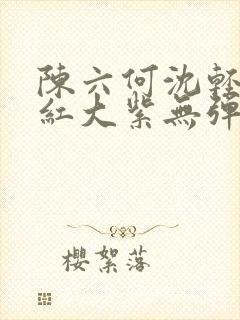 陳六何沈輕
紅大紫無彈
櫻絮落